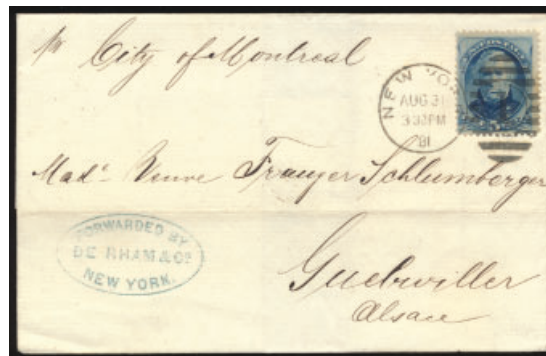 pr City of Montreal
NEW YORK
AUG 31
3 30 PM
81
Made Veuve Franger Schlumberger
FORWARDED BY
DE RHAM & Co
NEW YORK.
Guebwiller
Alsace